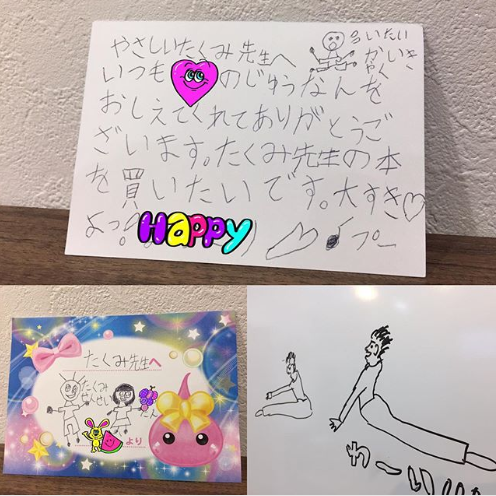 やさしいたくみ先生へ
いつも のじゅうなんを
おしえてくれてありがとうご
ざいます。たくみ先生の本
を買いたいです。大すき♡
よっ
Happy
プー
いたい
かいき
たくみ先生へ
たくみ
せんせい
より
わーい